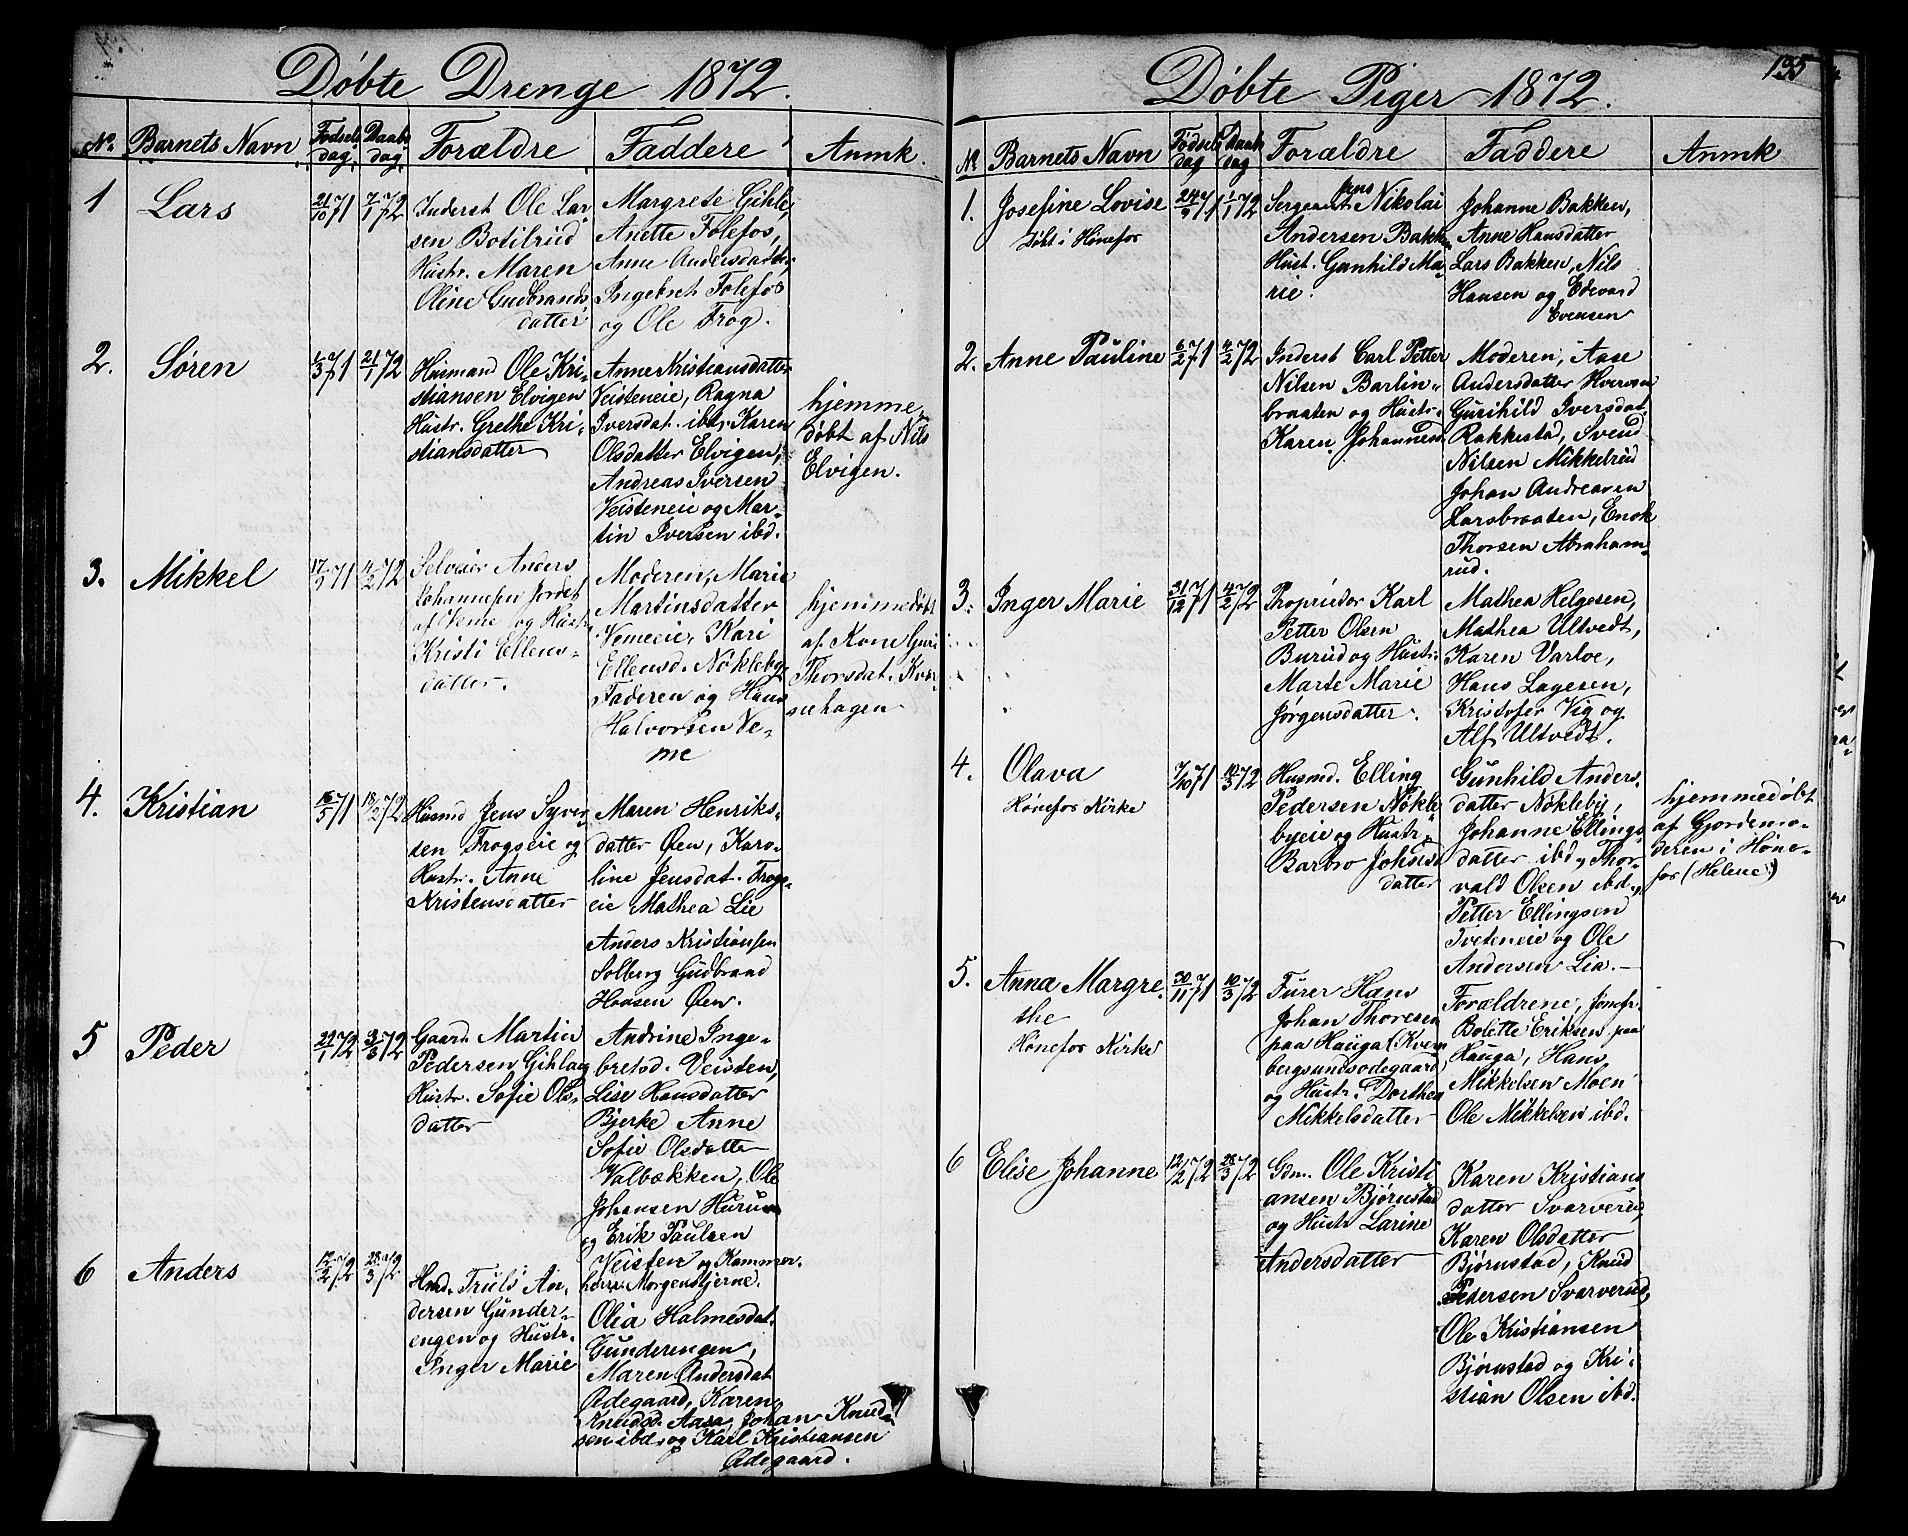 Döbte Drenge 1872.
No. Barnets Navn Fødsels dag. Daabs dag. Forældre Faddere Anmk.
1 Lars 21/10 71 7/1 72
Inderst Ole Lar
sen Botilrud
Hustr. Maren
Oline Gudbrands
datter
Margrete Gihle,
Anette Folefos,
Anne Andersdatter,
Ingebret Folefos
og Ole Frog.
2. Søren 1/3 71 21/1 72
Husmand Ole Kri-
stiansen Elvigen
Hustr. Grethe Kri-
stiansdatter
Anne Kristiansdatter
Veisteneie, Ragna
Iversdat. ibd, Karen
Olsdatter Elvigen,
Andreas Iversen
Veisteneie og Mar-
tin Iversen ibd.
hjemme-
döbt af Nils
Elvigen.
3. Mikkel 17/9 71 4/2 72
Selveier Anders
Johannesen Jordet
af Veme og Hustr.
Kristi Ellens-
datter.
Moderen, Marie
Martinsdatter
Vemeeie, Kari
Ellensd. Nökleby,
Faderen og Hans
Halvorsen Ve-
me
hjemmedöbt
af Kone Guri
Thorsdat. Kor-
sehagen
4. Kristian 16/5 71 18/2 72
Husmd Jens Syver-
sen Frogseie og
Hustr. Anne
Kristensdatter
Maren Henriks-
datter Øen, Karo-
line Jensdat. Frogs-
eie Mathea Lie
Anders Kristiansen
Solberg Gudbrand
Hansen Øen.
5 Peder 29/1 72 3/3 72
Gaard. Martin
Pedersen Gihle og
Hustr. Sofie Ols-
datter
Andrine Inge-
bretsd. Veisten,
Lise Hansdatter
Bjerke Anne
Sofie Olsdatter
Valbækken, Ole
Johansen Hurum
og Erik Paulsen
Veisten og Kammer-
herre Morgenstjerne.
6 Anders 12/2 72 28/3 72
Hmd. Truls An-
dersen Gunder-
engen og Hustr.
Inger Marie
Olia Halmesdat.
Gunderengen,
Maren Andersdat
Ødegaard, Karen
Knudsd. Aasa, Johan Knud-
sen ibd, og Karl Kristiansen
Ødegaard.
195
Döbte Piger 1872.
No Barnets Navn Fødsels dag Daabs dag Forældre Faddere Anmk
1. Josefine Lovise 24/9 71 1/1 72
Döbt i Hönefos
Sergeant Jens Nikolai
Andersen Bakken
Hust. Gunhild Ma-
rie.
Johanne Bakken,
Anne Hansdatter
Lars Bakken, Nils
Hansen og Edevard
Evensen
2. Anne Pauline 6/2 71 4/2 72
Inderst Carl Petter
Nilsen Barlin-
braaten og Hustr.
Karen Johannesd
Moderen, Aase
Andersdatter Hverven
Gurihild Iversdat.
Rakkestad, Svend
Nilsen Mikkelrud
Johan Andreasen
Larsbraaten, Enok
Thorsen Abraham-
rud.
3. Inger Marie 31/12 71 4/2 72
Proprietør Karl
Petter Olsen
Burud og Hustr.
Marte Marie
Jörgensdatter.
Mathea Helgesen,
Mathea Ultvedt,
Karen Varloe,
Hans Lagesen,
Kristofer Vig og
Alf Ultvedt.
4. Olava 7/10 71 10/3 72
Hönefos Kirke
Husmd. Elling
Pedersen Nökle-
byeie og Hustr.
Barbro Johns
datter
Gunhild Anders-
datter Nökleby,
Johanne Ellings-
datter ibd, Thor-
vald Olsen ibd.,
Petter Ellingsen
Tveteneie og Ole
Andersen Lia.
hjemmedöbt
af Gjordemo-
deren i Höne-
fos (Helene)
5. Anna Margre- 30/11 71 10/3 72
the
Hönefos Kirke
Furer Hans
Johan Thoresen
paa Hauga (Kvern
bergsundsödegaard,
og Hustr. Dorthea
Mikkelsdatter
Forældrene, Jomfr.
Bolette Eriksen paa
Hauga, Hans
Mikkelsen Moen
Ole Mikkelsen ibd.
6 Elise Johanne 12/2 72 28/3 72
Gdm. Ole Kristi
ansen Bjørnstad
og Hustr Larine
Andersdatter
Karen Kristians
datter Svarverud,
Karen Olsdatter
Bjørnstad, Knud
Pedersen Svarverud,
Ole Kristiansen
Bjørnstad og Kri-
stian Olsen ibd.